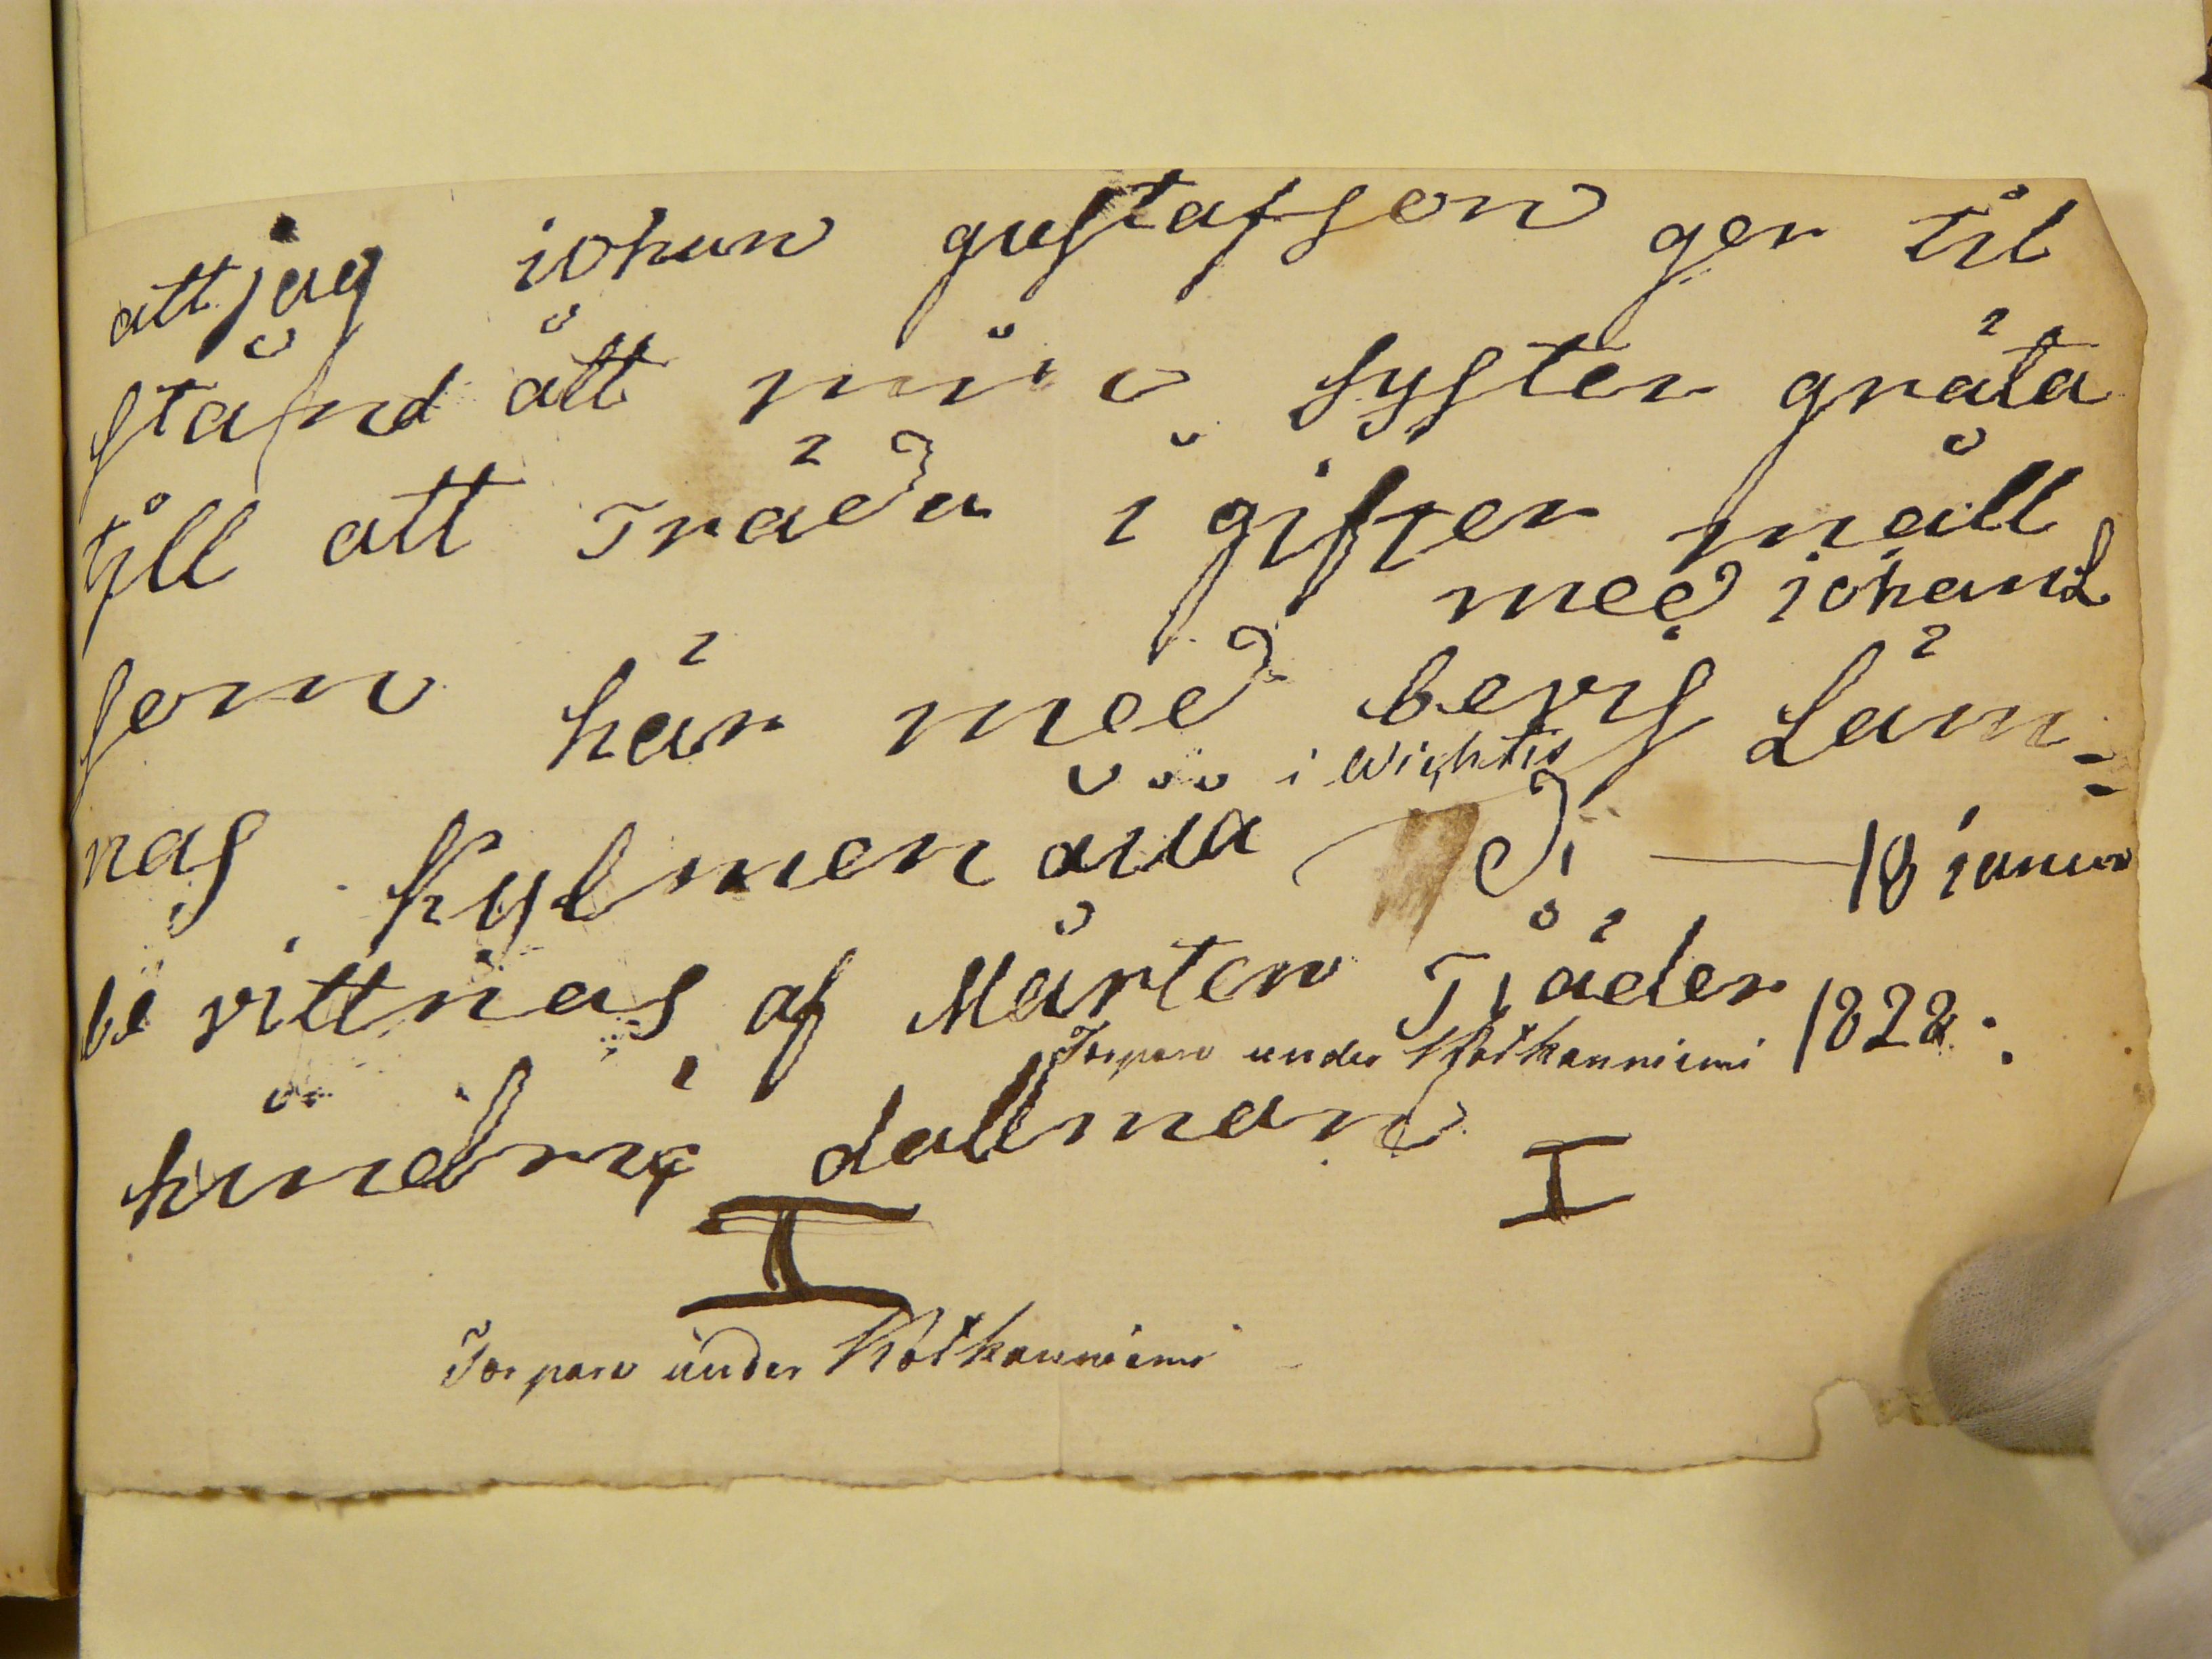 att jag iohan gustafson ger til
stånd att min syster gräta
till att Träda i gifter måll
med iohan L
som här med bevis Läm=
nas Kylmenälä i Wichtis d. 18 ianua
be vittnas af Mårten Tjäder 1828:
Torpare under Kotkanniemi
hindric dallman
Torpare under Kotkanniemi